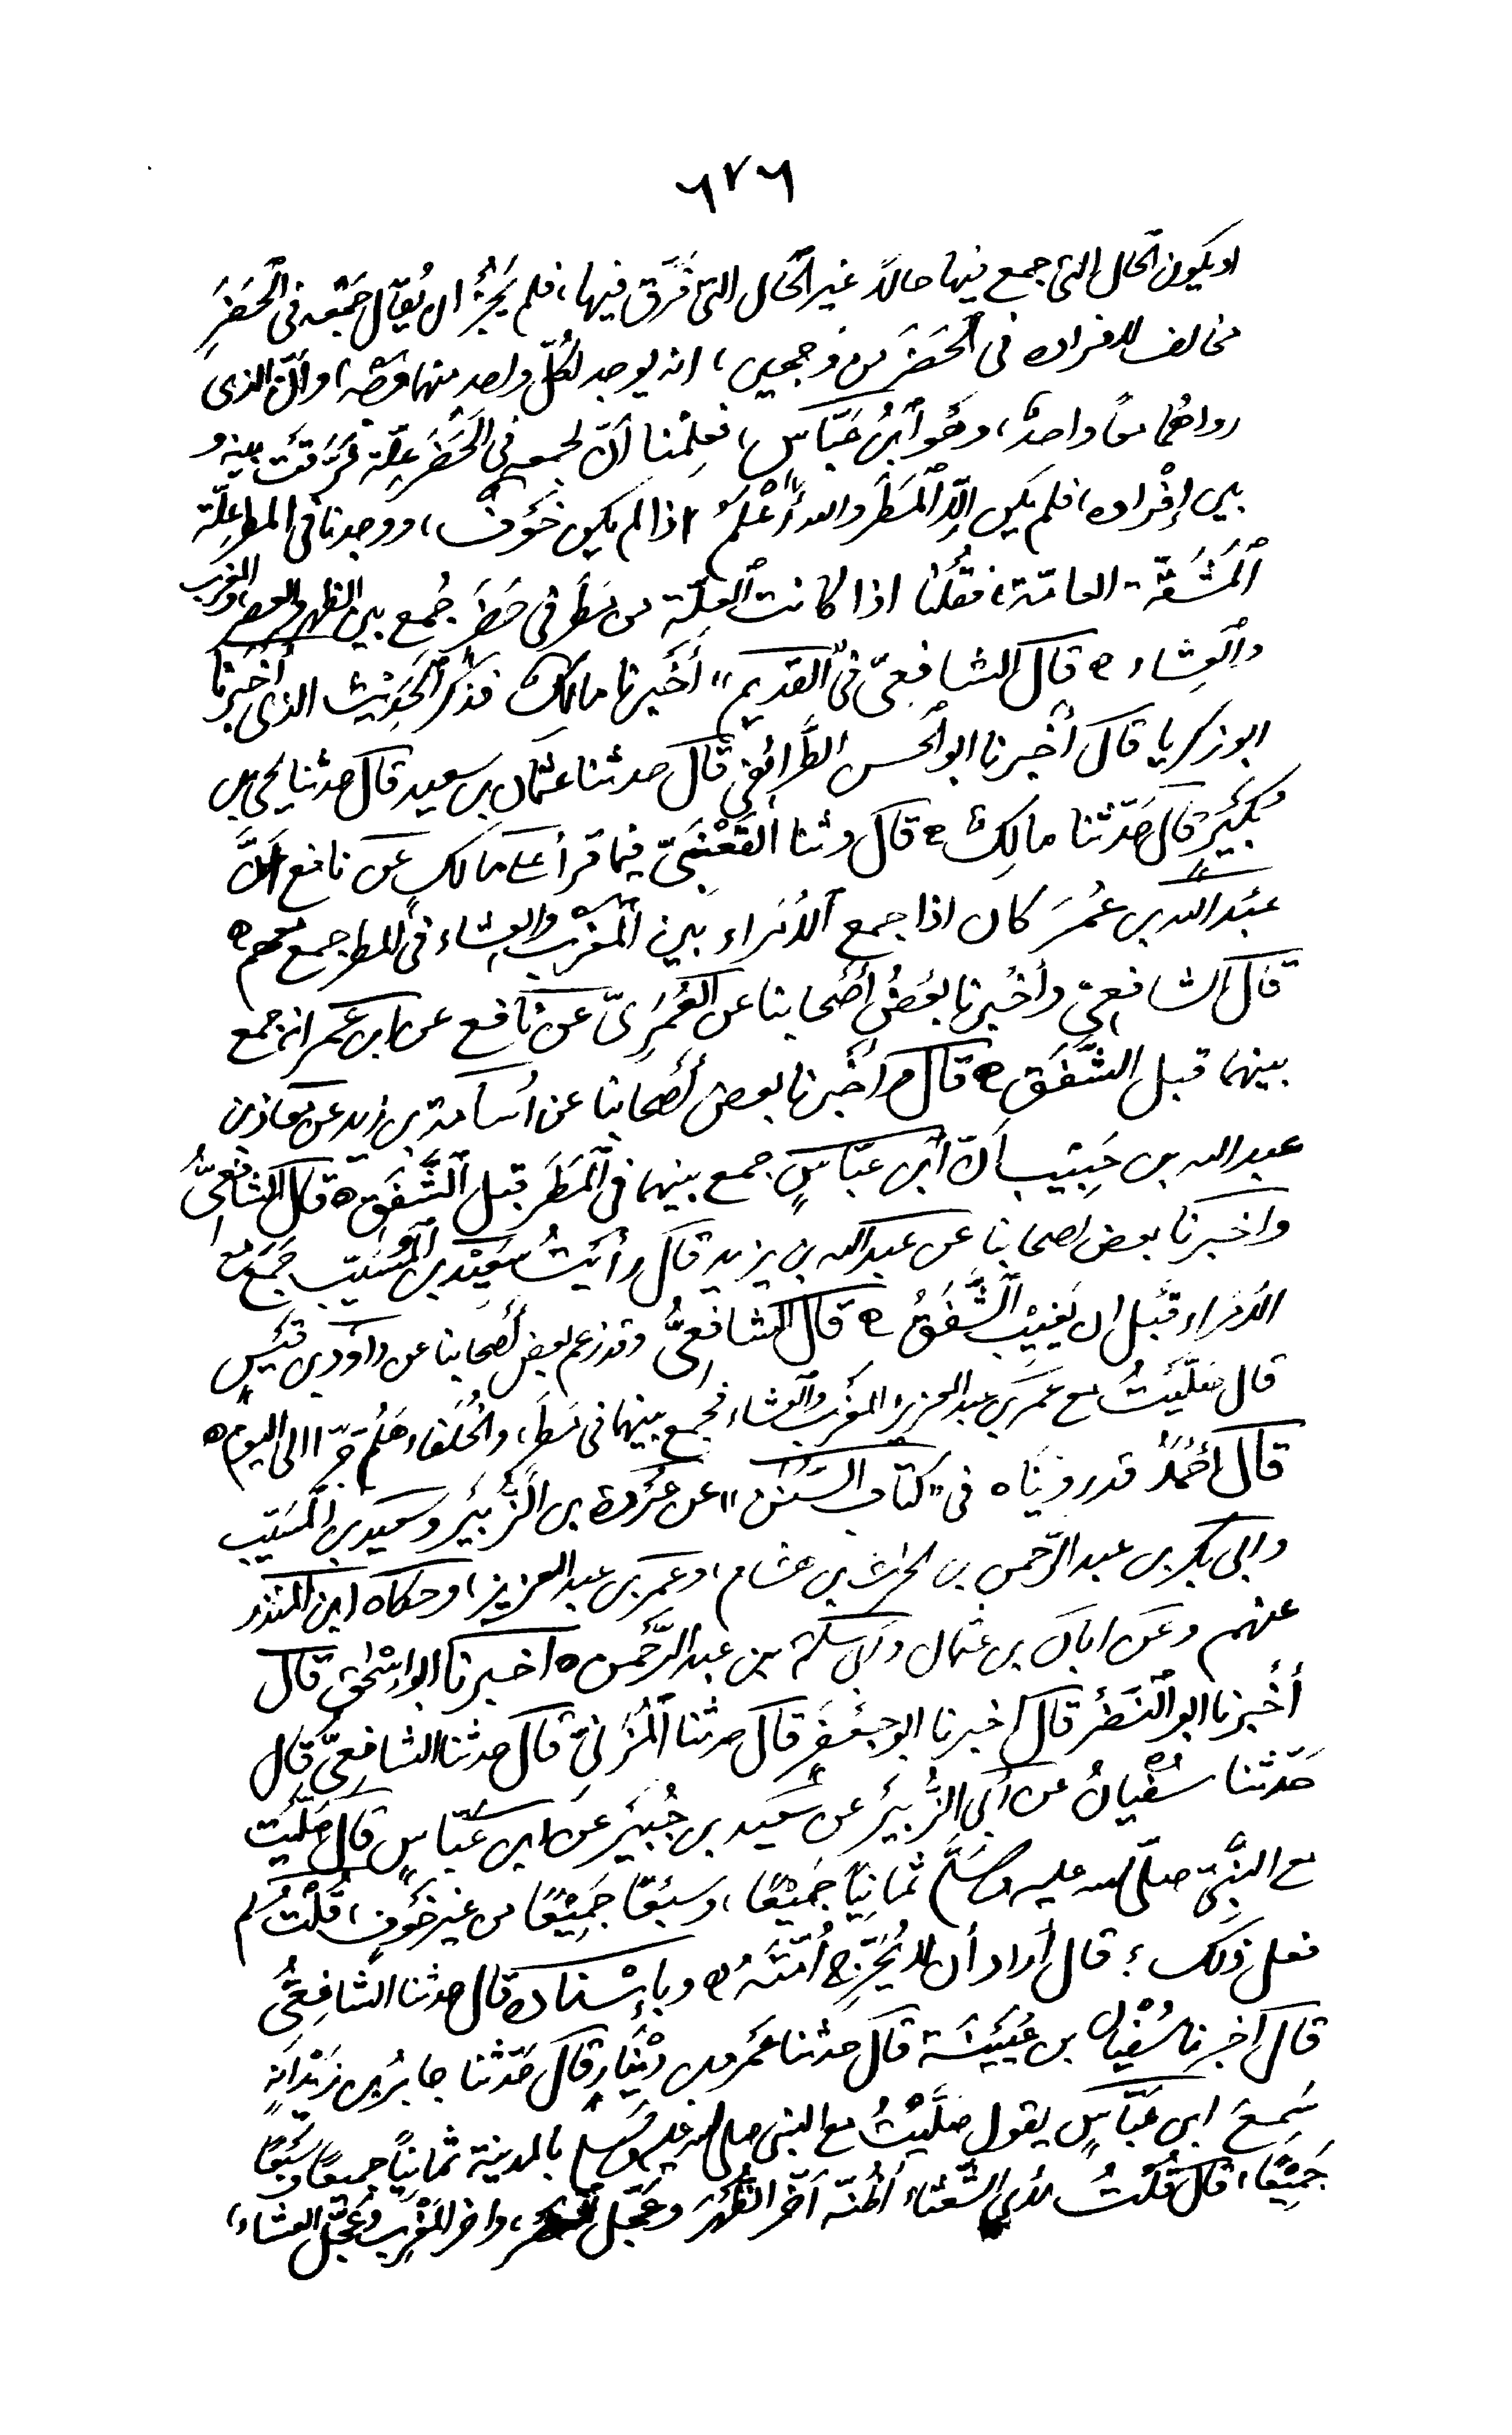 ٦٧٦
او يكون الحال التى جمع فيها حالاً غير الحال التى فَرَّق فيها، فلم يَجُزْ ان يُقال جَمْعُه فى الحَضَرِ
مخالف لافراده فى الحَضَر من وجهين، انه يوجد لكُلّ واحد منهما وَجْه، وأنّ الذى
رواهُما معًا واحدٌ، وهُو ابنُ عَبّاس، فعَلِمْنا أنّ لجمعه فى الحَضَر عِلّة فَرَّقَت بينه و
بين إفْراده، فلم يكن إلّا المَطَر والله أعْلَمُ اذا لم يكن خَوْفٌ، ووجدنا فى المطر عِلّة
المَشَقَّة العامّة، فقُلْنا اذا كانت العِلّة من مَطَر فى حَضَر جُمع بين الظهر والعصر والمغرب
والعِشاء ه قال الشافعىّ فى القديم، أخْبَرنا مالك فذكر الحَدِيث الذى أخْبَرنا
ابو زكريا قال أخْبرنا ابو الحسن الطَّرائفى قال حدثنا عثمان بن سعيد قال حدثنا يحيى بن
بُكَيْر قال حَدّثنا مالِك ه قال وثنا القَعْنَبىّ فيما قرأ على مالك عن نافع أنّ
عَبْد الله بن عُمَر كان اذا جمع الأُمَراء بين المَغْرب والعِشاء فى المطر جمع معهم ه
قال الشافعىّ وأخْبرنا بعْضُ أصْحابنا عن العُمَرِىّ عن نافع عن ابن عمر انه جمع
بينهما قبل الشَّفَق ه قال وأخْبرنا بعض أصْحابنا عن أُسامة بن زيد عن معاذ بن
عبد الله بن خُبَيْب أنّ ابن عَبّاسٍ جمع بينهما فى المَطَر قبل الشَّفَق ه قال الشافعىُّ
واخبرنا بعض اصحابنا عن عبد الله بن يزيد قال رأيْتُ سَعِيْد بن المُسَيّب جَمَع مع
الأمراء قَبْل ان يَغِيْبَ الشَّفَقُ ه قال الشافعىُّ وقد زعم بعض أصْحابنا عن داود بن قَيْسٍ
قال صَلَّيْتُ مع عمر بن عبد العزيز المغرب والعشاء فجمع بينهما فى مَطَر، والخُلَفاء هَلُمّ جَرّا الى اليوم ه
قال أحْمَدُ قد رويناه فى "كتاب السُّنَن" عن عُرْوة بن الزُّبَيْر وسعيد بن المُسَيّب
وابى بكر بن عبد الرَّحمن بن الحرث بن هشام، وعمر بن عبد العزيز، وحكاه ابن المُنْذر
عنهم وعن ابان بن عثمان وابى سلمة بن عبد الرَّحْمن ه اخبرنا ابو إسْحٰق قال
أخْبرنا ابو النَّضْر قال اخبرنا ابو جَعْفَرٍ قال حدثنا المُزَنىّ قال حدثنا الشافعىُّ قال
حَدّثنا سُفْيانُ عن أبى الزُّبَيْر عن سَعِيد بن جُبَيْر عن ابن عَبّاسٍ قال صَلَّيْت
مع النَّبِىّ صلّى الله عليه وسَلَّم ثمانِيًا جَمِيْعًا، وسَبْعًا جَمِيْعًا من غير خَوْفٍ، قُلْتُ لم
فعل ذلك؟ قال أراد أن لا يُحَرِّج أُمّتَهُ ه وبإسْناده قال حدثنا الشافعىُّ
قال أخبرنا سُفْيان بن عُيَيْنَة قال حدثنا عَمْرو بن دِيْنارٍ قال حَدّثنا جابِرُ بن زَيْد انه
سَمِعَ ابن عَبّاسٍ يقول صَلَّيْتُ مع النبى صلى الله عليه وسلم بالمدينة ثمانِيًا جميعًا وسَبْعًا
جَمِيْعًا، قال قُلْتُ لأبى الشَّعْثاء أظُنّه أخّر الظُّهْرَ وعَجّل العَصْر، واخر المَغْرِب وعَجّل العشاء،